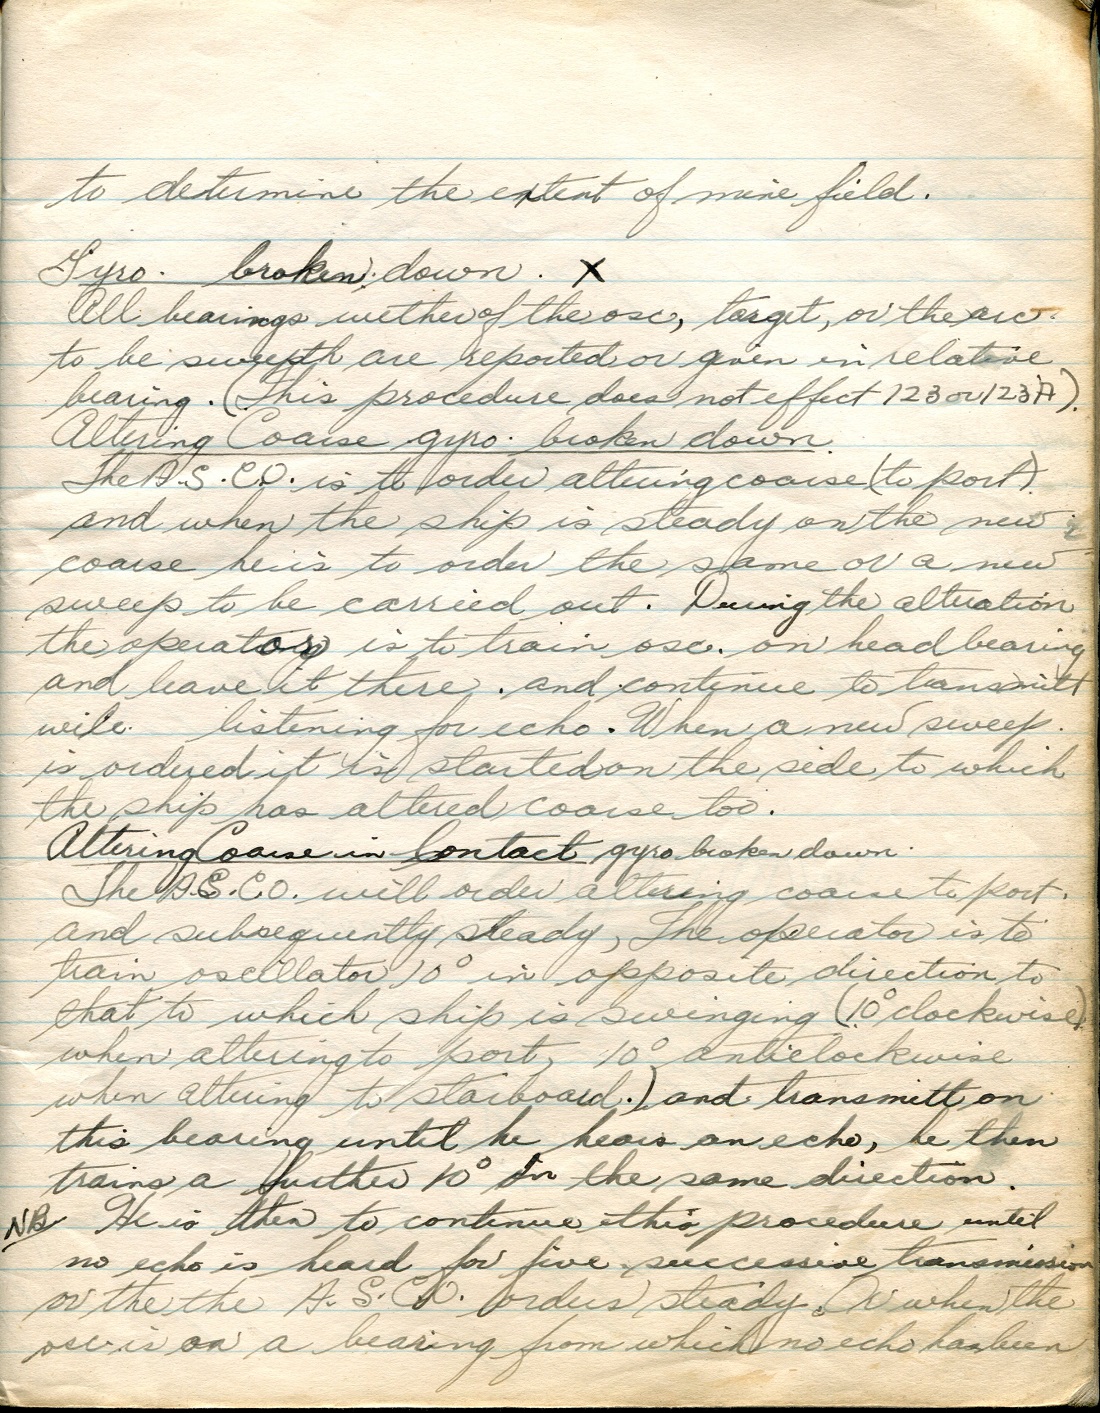 to determine the extent of mine field.
Gyro. broken down. X
All bearings wether of the osc, target, or the arc.
to be sweepth are reported or given in relative
bearing. (This procedure does not effect 123 or 123A).
Altering Coarse gyro. broken down.
The A.S.C.O. is to order altering coarse (to port)
and when the ship is steady on the new
coarse he is to order the same or a new
sweep to be carried out. During the altuation
the operator is to train osc. on head bearing
and leave it there. and continue to transmitt
wile listening for echo. When a new sweep.
is ordered it is started on the side to which
the ship has altered coarse too.
Altering Coarse in Contact gyro broken down.
The A.S.C.O. will order altering coarse to port.
and subsequently steady, The operator is to
train oscillator 10° in opposite direction to
that to which ship is swinging (10° clockwise)
when altering to port, 10° anticlockwise
when altering to starboard.) and transmitt on
this bearing until he hears an echo, he then
trains a further 10° in the same direction.
NB He is then to continue this procedure until
no echo is heard for five successive transmission
or the the A.S.C.O. orders steady. Or when the
osc is on a bearing from which no echo has been